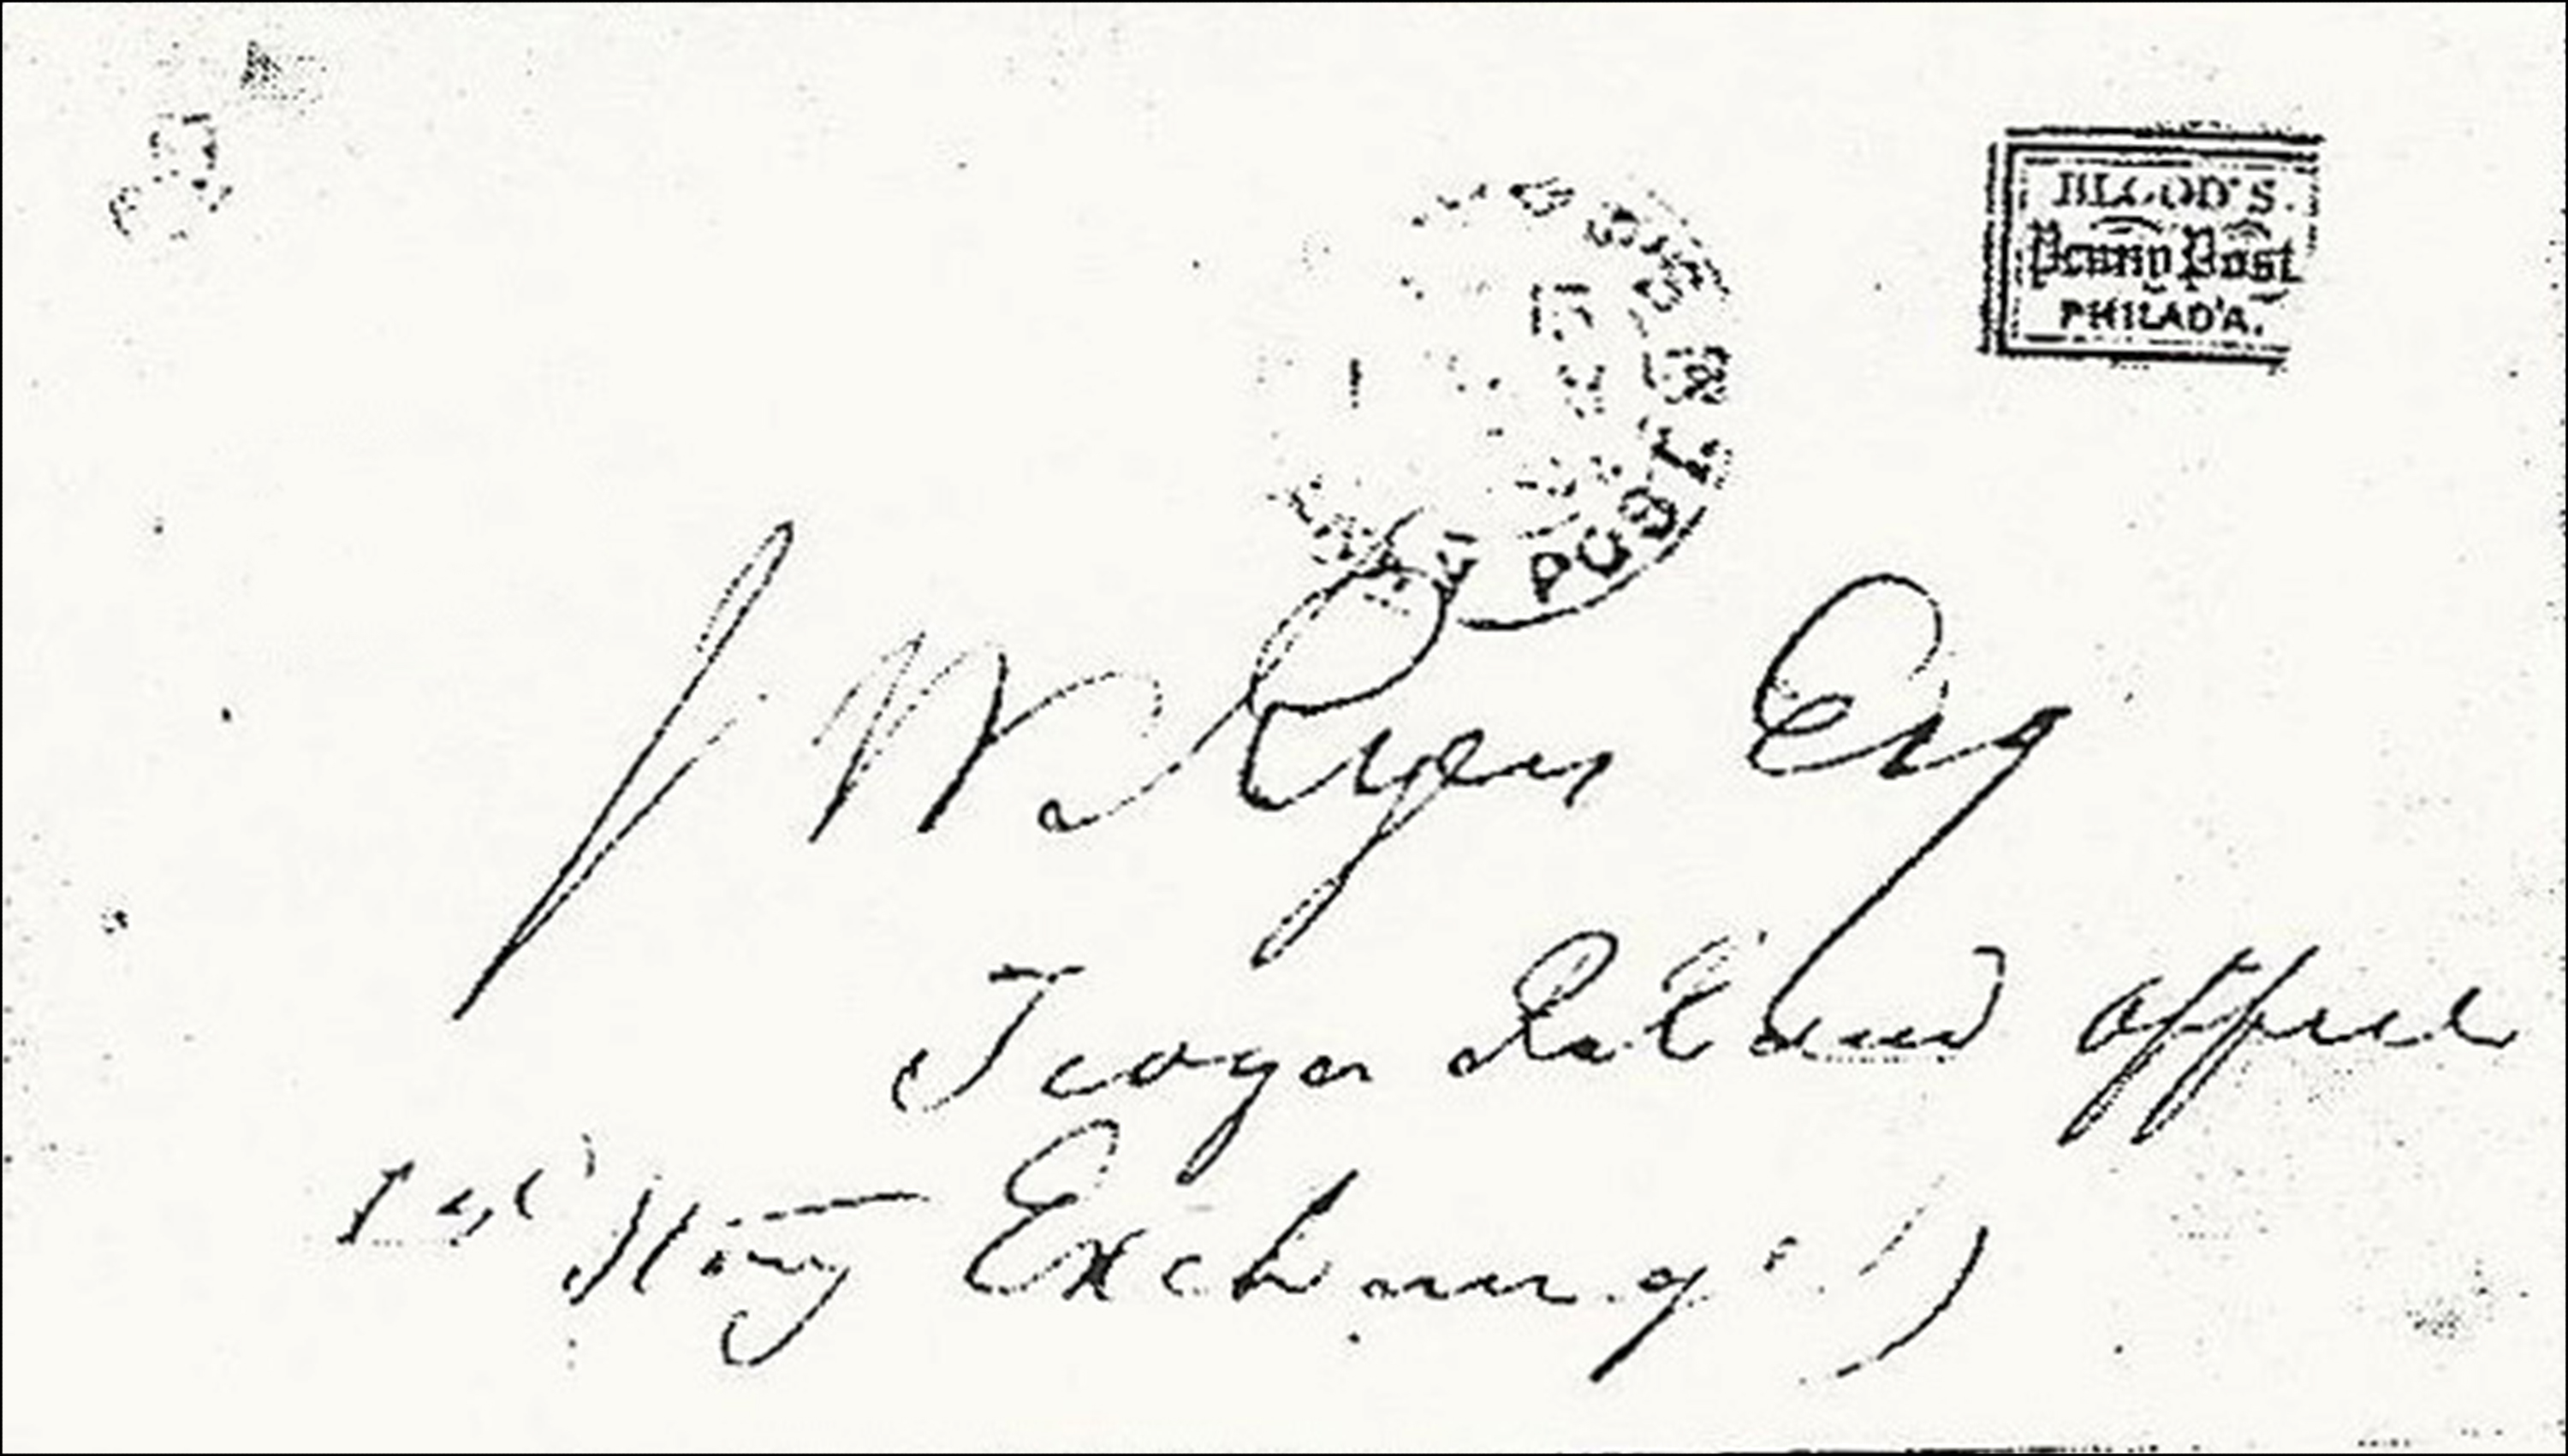 BLOOD'S
Penny Post
PHILAD'A.
BLOOD'S
POST
J W Ryers Esq
Tioga Railroad office
1st Story Exchange